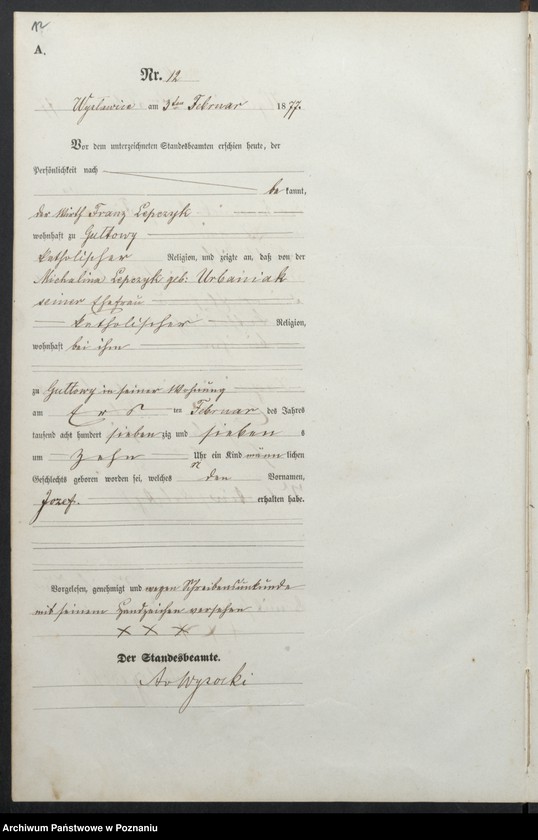 12
A.
Nr. 12
am 3ten Februar 1877.
Vor dem unterzeichneten Standesbeamten erschien heute, der
Persönlichkeit nach
be kannt,
der Wirth Franz Lepczyk
wohnhaft zu Guttowy
katholischer Religion, und zeigte an, daß von der
Michalina Lepczyk geb: Urbaniak
seiner Ehefrau
katholischer Religion,
wohnhaft bei ihm
zu Guttowy in seiner Wohnung
am Ers ten Februar des Jahres
tausend acht hundert sieben zig und sieben
um Zehn Uhr ein Kind männ lichen
Geschlechts geboren worden sei, welches den Vornamen,
Jozef. erhalten habe.
Vorgelesen, genehmigt und wegen Schreibensunkunde
mit seinem Handzeichen versehen
x x x
Der Standesbeamte.
Wysocki
Archiwum Państwowe w Poznaniu